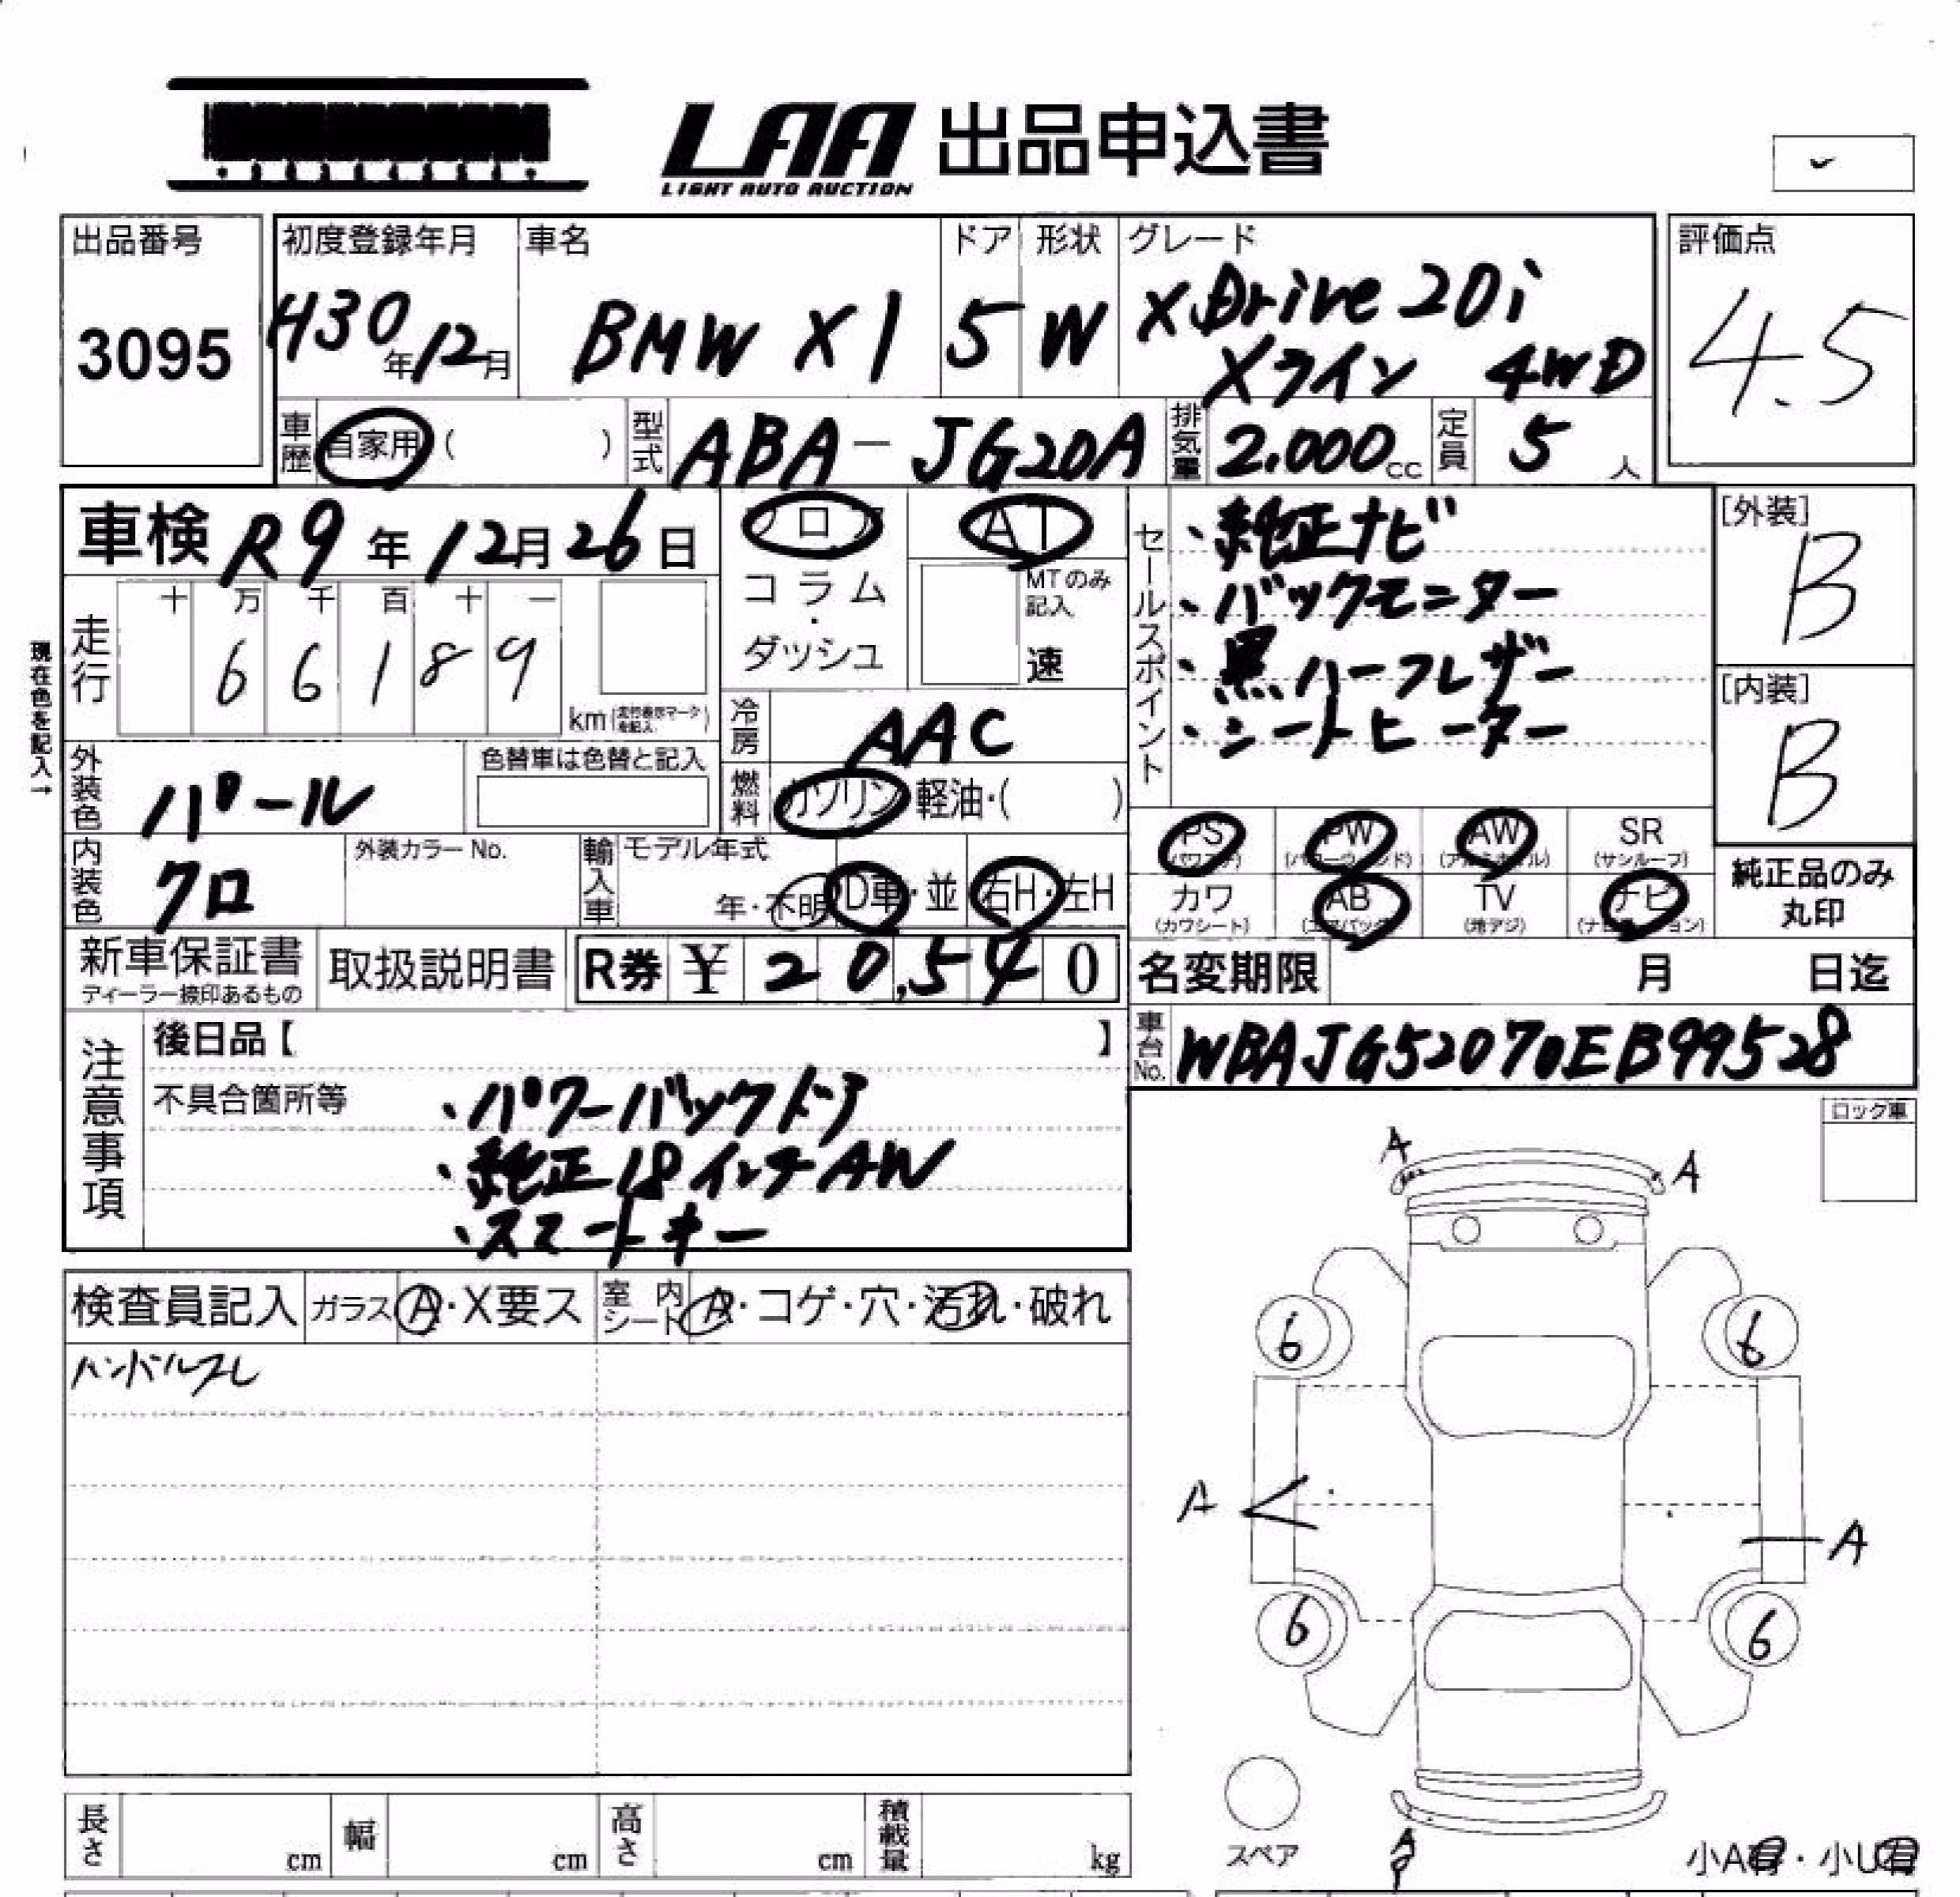 LAA 出品申込書
LIGHT AUTO AUCTION
出品番号
3095
初度登録年月
H30年12月
車名
BMW X1
ドア
5
形状
W
グレード
XDrive20i
Xライン 4WD
評価点
4.5
車歴
自家用( )
型式
ABA-JG20A
排気量
2.000cc
定員
5人
車検 R9年12月26日
フロア
コラム
・
ダッシュ
AT
MTのみ
記入
速
セールスポイント
・純正ナビ
・バックモニター
・黒ハーフレザー
・シートヒーター
[外装]
B
[内装]
B
現在色を記入→
走行
十 万 千 百 十 一
6 6 1 8 9
km(走行表示マークを記入)
冷房
AAC
外装色
パール
色替車は色替と記入
燃料
ガソリン・軽油・( )
PS
(パワステ)
PW
(パワーウィンド)
AW
(アルミホイル)
SR
(サンルーフ)
カワ
(カワシート)
AB
(エアバッグ)
TV
(地デジ)
ナビ
(ナビゲーション)
純正品のみ
丸印
内装色
クロ
外装カラーNo.
輸入車
モデル年式
年・不明
D車・並
右H・左H
新車保証書
ディーラー捺印あるもの
取扱説明書
R券 ¥ 20,540
名変期限 月 日迄
車台No.
WBAJG52070EB99528
注意事項
後日品【 】
不具合箇所等
・パワーバックドア
・純正18インチAW
・スマートキー
ロック車
検査員記入
ガラス
A・X要ス
室内
シート
A・コゲ・穴・汚れ・破れ
ハンドルスレ
A
A
6
6
A
A
6
6
スペア
A
小A有・小U有
長さ cm
幅 cm
高さ cm
積載量 kg